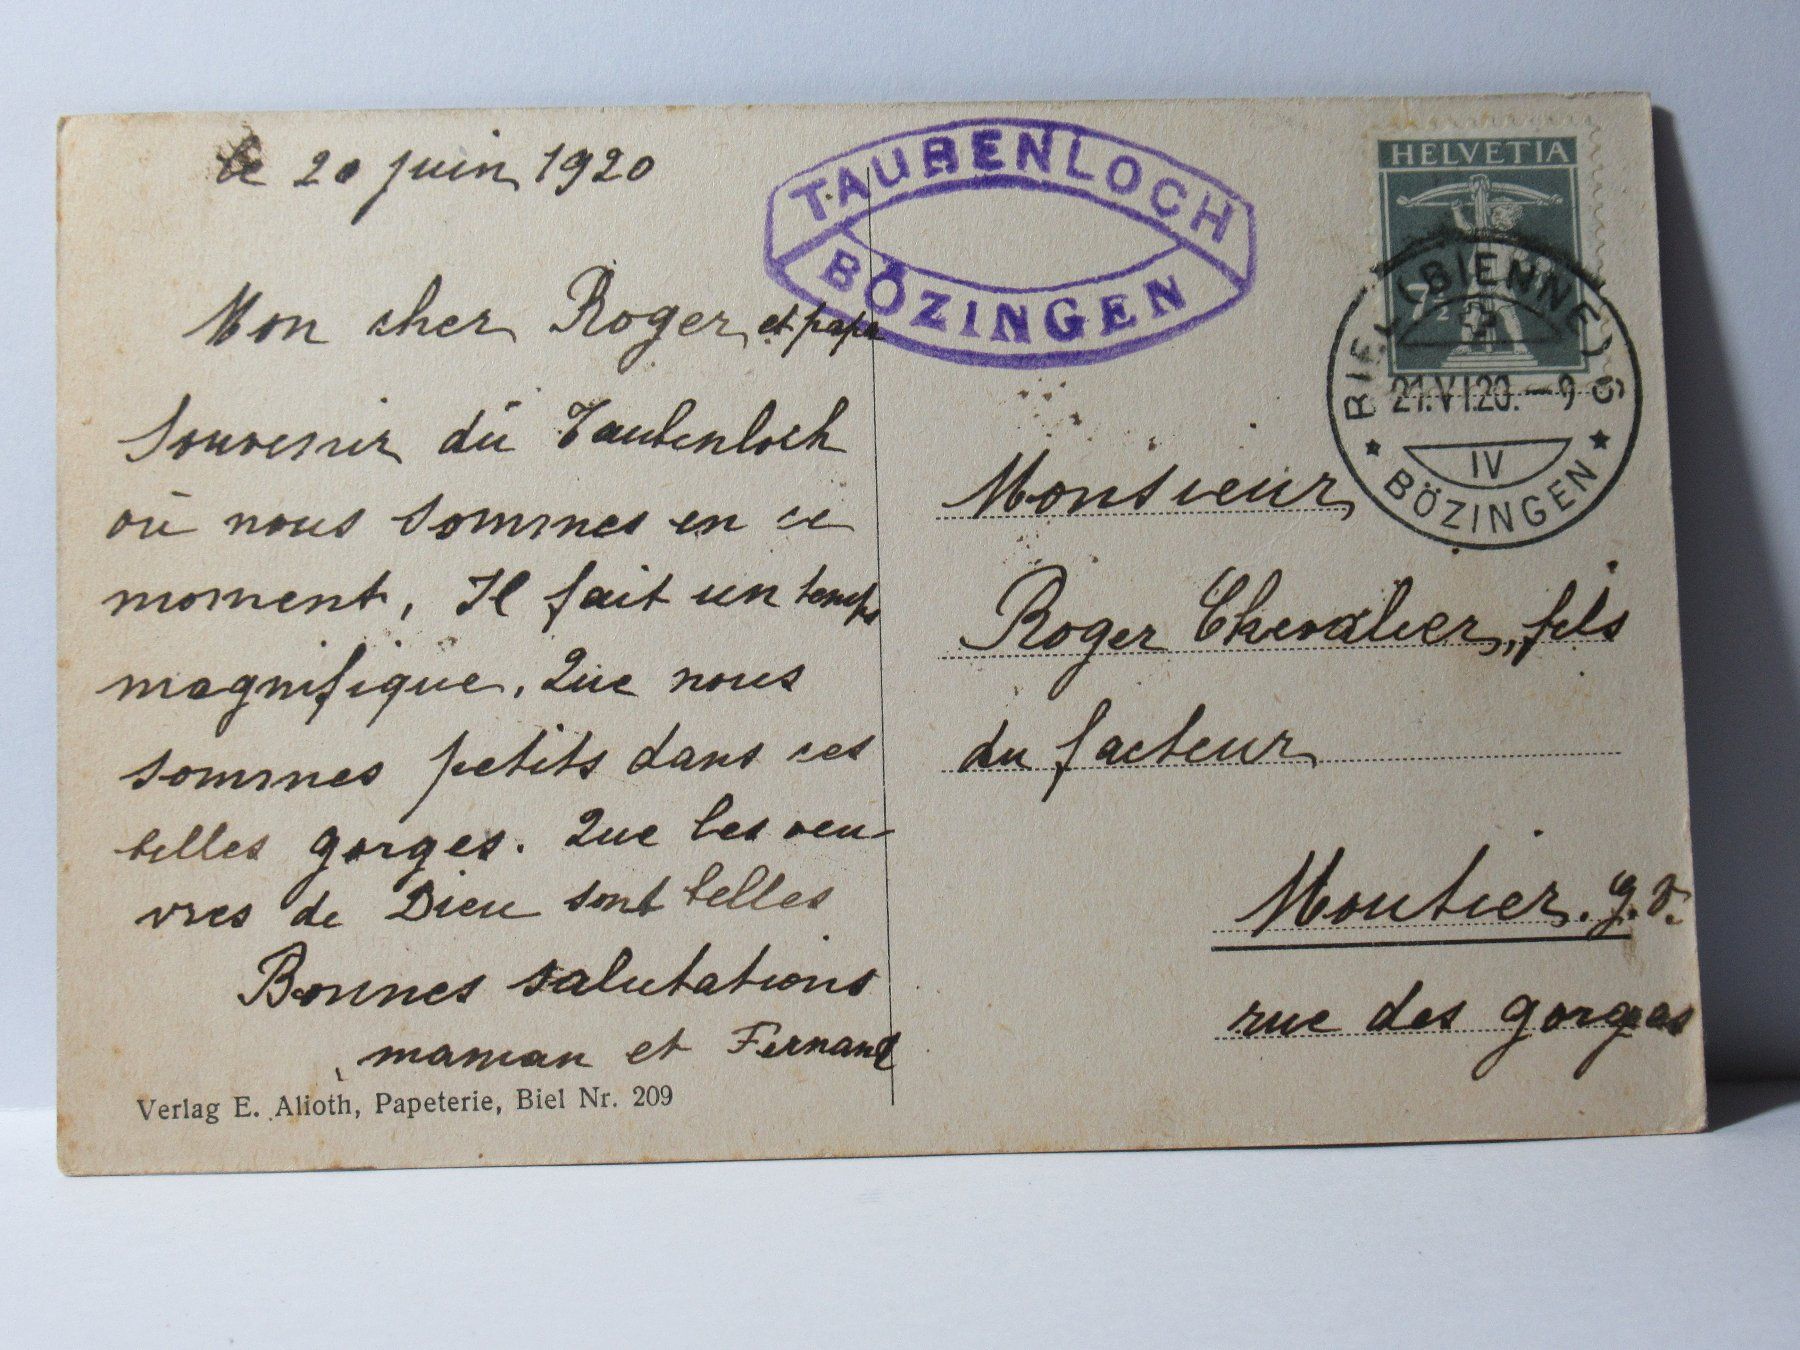 le 20 juin 1920
Mon cher Roger et papa
Souvenir dū Taubenloch
où nous sommes en ce
moment, Il fait un temps
magnifique. Que nous
sommes petits dans ces
belles gorges. Que les oeu-
vres de Dieu sont belles
Bonnes salutations
maman et Fernand
Verlag E. Alioth, Papeterie, Biel Nr. 209
TAUBENLOCH
BÖZINGEN
HELVETIA
7½
BIEL (BIENNE) 9
21.VI.20.–9
IV
BÖZINGEN
Monsieur
Roger Chevalier, fils
du facteur
Moutier. g. v.
rue des gorges